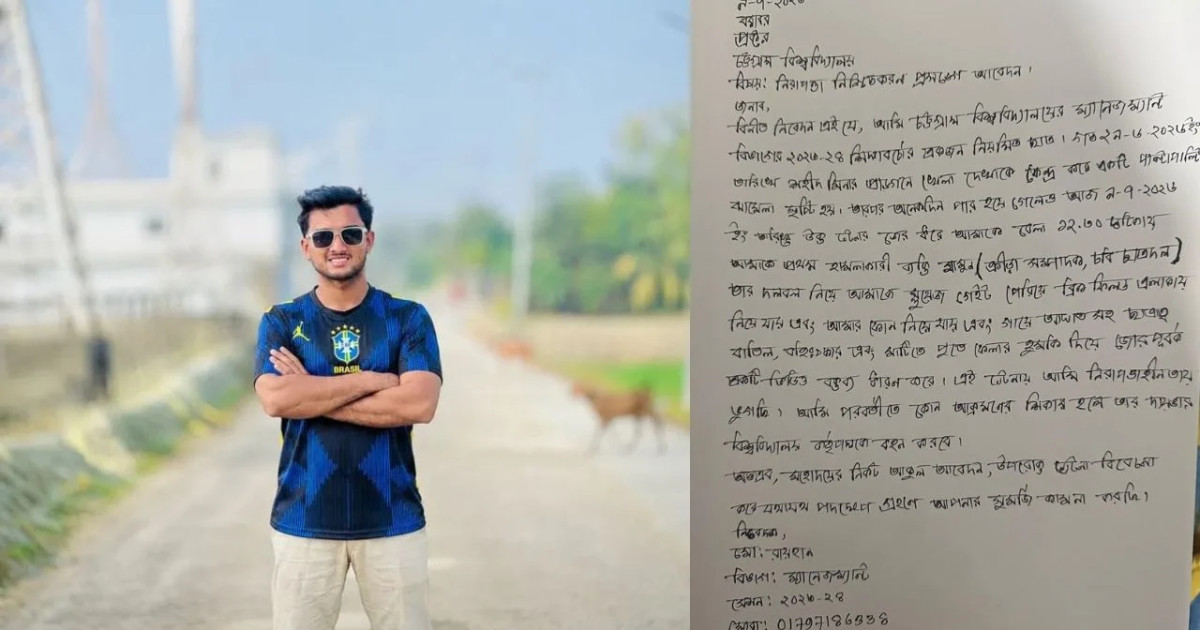 BRASIL
৯-৭-২০২৬
বরাবর
প্রক্টর
চট্টগ্রাম বিশ্ববিদ্যালয়
বিষয়: নিরাপত্তা নিশ্চিতকরণ প্রসঙ্গে আবেদন।
জনাব,
বিনীত নিবেদন এই যে, আমি চট্টগ্রাম বিশ্ববিদ্যালয়ের ম্যানেজম্যান্ট
বিভাগের ২০২৩-২৪ শিক্ষাবর্ষের একজন নিয়মিত ছাত্র। গত ২৯-৬-২০২৬ইং
তারিখে শহীদ মিনার প্রাঙ্গনে খেলা দেখাকে কেন্দ্র করে একটি পাল্টাপাল্টি
ঝামেলা সৃষ্টি হয়। তারপর অনেকদিন পার হয়ে গেলেও আজ ৯-৭-২০২৬
ইং তারিখে উক্ত ঘটনার জের ধরে আমাকে বেলা ১২.৩০ ঘটিকায়
আমাকে প্রথম হামলাকারী ব্যক্তি মামুন (ক্রীড়া সম্পাদক, চবি ছাত্রদল)
তার দলবল নিয়ে আমাকে গেইট পেরিয়ে ব্রিক ফিল্ড এলাকায়
নিয়ে যায় এবং আমার ফোন নিয়ে যায় এবং গায়ে আঘাত সহ ছাত্রত্ব
বাতিল, বহিষ্কার এবং মাটিতে পুতে ফেলার হুমকি দিয়ে জোরপূর্বক
একটি ভিডিও বক্তব্য ধারণ করে। এই ঘটনায় আমি নিরাপত্তাহীনতায়
ভুগছি। আমি পরবর্তীতে কোন আক্রমণের শিকার হলে তার দায়ভার
বিশ্ববিদ্যালয় কর্তৃপক্ষকে বহন করবে।
অতএব, মহোদয়ের নিকট আকুল আবেদন, উপরোক্ত ঘটনা বিবেচনা
করে যথাযথ পদক্ষেপ গ্রহণে আপনার সুমর্জি কামনা করছি।
নিবেদক,
মো: রায়হান
বিভাগ: ম্যানেজম্যান্ট
সেশন: ২০২৩-২৪